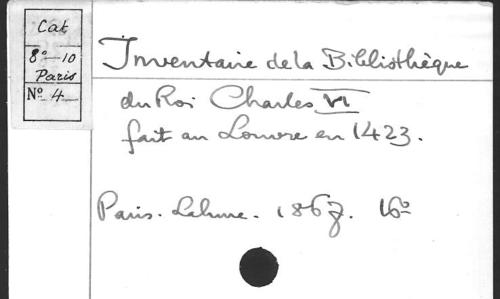 Cat
8°-10
Paris
N° 4
Inventaire de la Bibliothèque
du Roi Charles VI
fait au Louvre en 1423.
Paris. Lahure. 1867. 16°